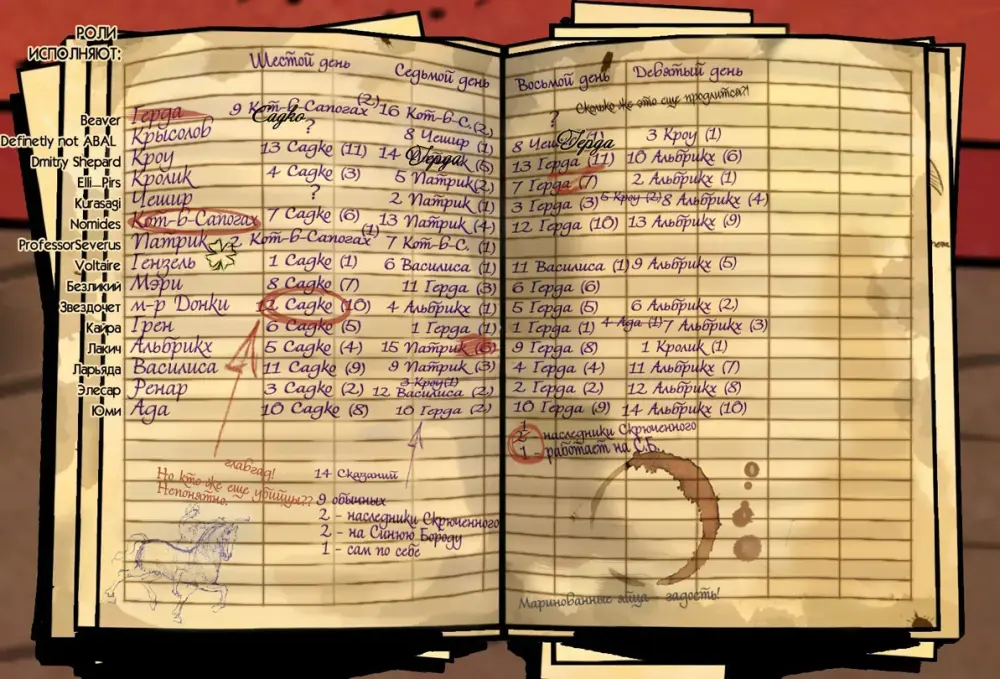 РОЛИ
ИСПОЛНЯЮТ:
Шестой день Седьмой день Восьмой день Девятый день
Beaver Герда 9 Кот-в-Сапогах (2) 16 Кот-в-С. (2) ? Сколько же это еще продлится?!
Definetly not ABAL Крысолов Садко ? 8 Чешир (1) 8 Чешир (1) Герда 3 Кроу (1)
Dmitry Shepard Кроу 13 Садко (11) 14 Герда (5) 13 Герда (11) 10 Альбрихх (6)
Elli_Pirs Кролик 4 Садко (3) 5 Патрик (2) 7 Герда (7) 2 Альбрихх (1)
Kurasagi Чешир ? 2 Патрик (1) 3 Герда (3) 5 Кроу (2) 8 Альбрихх (4)
Nomides Кот-в-Сапогах 7 Садко (6) 13 Патрик (4) 12 Герда (10) 13 Альбрихх (9)
ProfessorSeverus Патрик 2 Кот-в-Сапогах (1) 7 Кот-в-С. (1)
Voltaire Гензель 1 Садко (1) 6 Василиса (1) 11 Василиса (1) 9 Альбрихх (5)
Безликий Мэри 8 Садко (7) 11 Герда (3) 6 Герда (6)
Звездочет м-р Донки 12 Садко (10) 4 Альбрихх (1) 5 Герда (5) 6 Альбрихх (2)
Кайра Грен 6 Садко (5) 1 Герда (1) 1 Герда (1) 4 Ада (1) 7 Альбрихх (3)
Лакич Альбрихх 5 Садко (4) 15 Патрик (6) 9 Герда (8) 1 Кролик (1)
Ларьяда Василиса 11 Садко (9) 9 Патрик (3) 4 Герда (4) 11 Альбрихх (7)
Элесар Ренар 3 Садко (2) 3 Кроу (1) 12 Василиса (2) 2 Герда (2) 12 Альбрихх (8)
Юми Ада 10 Садко (8) 10 Герда (2) 10 Герда (9) 14 Альбрихх (10)
1
2 - наследники Скрюченного
1 - работает на С.Б.
главгад!
Но кто же еще убийцы??
Непонятно.
14 Сказаний
9 обычных
2 - наследники Скрюченного
2 - на Синюю Бороду
1 - сам по себе
Маринованные яйца - гадость!